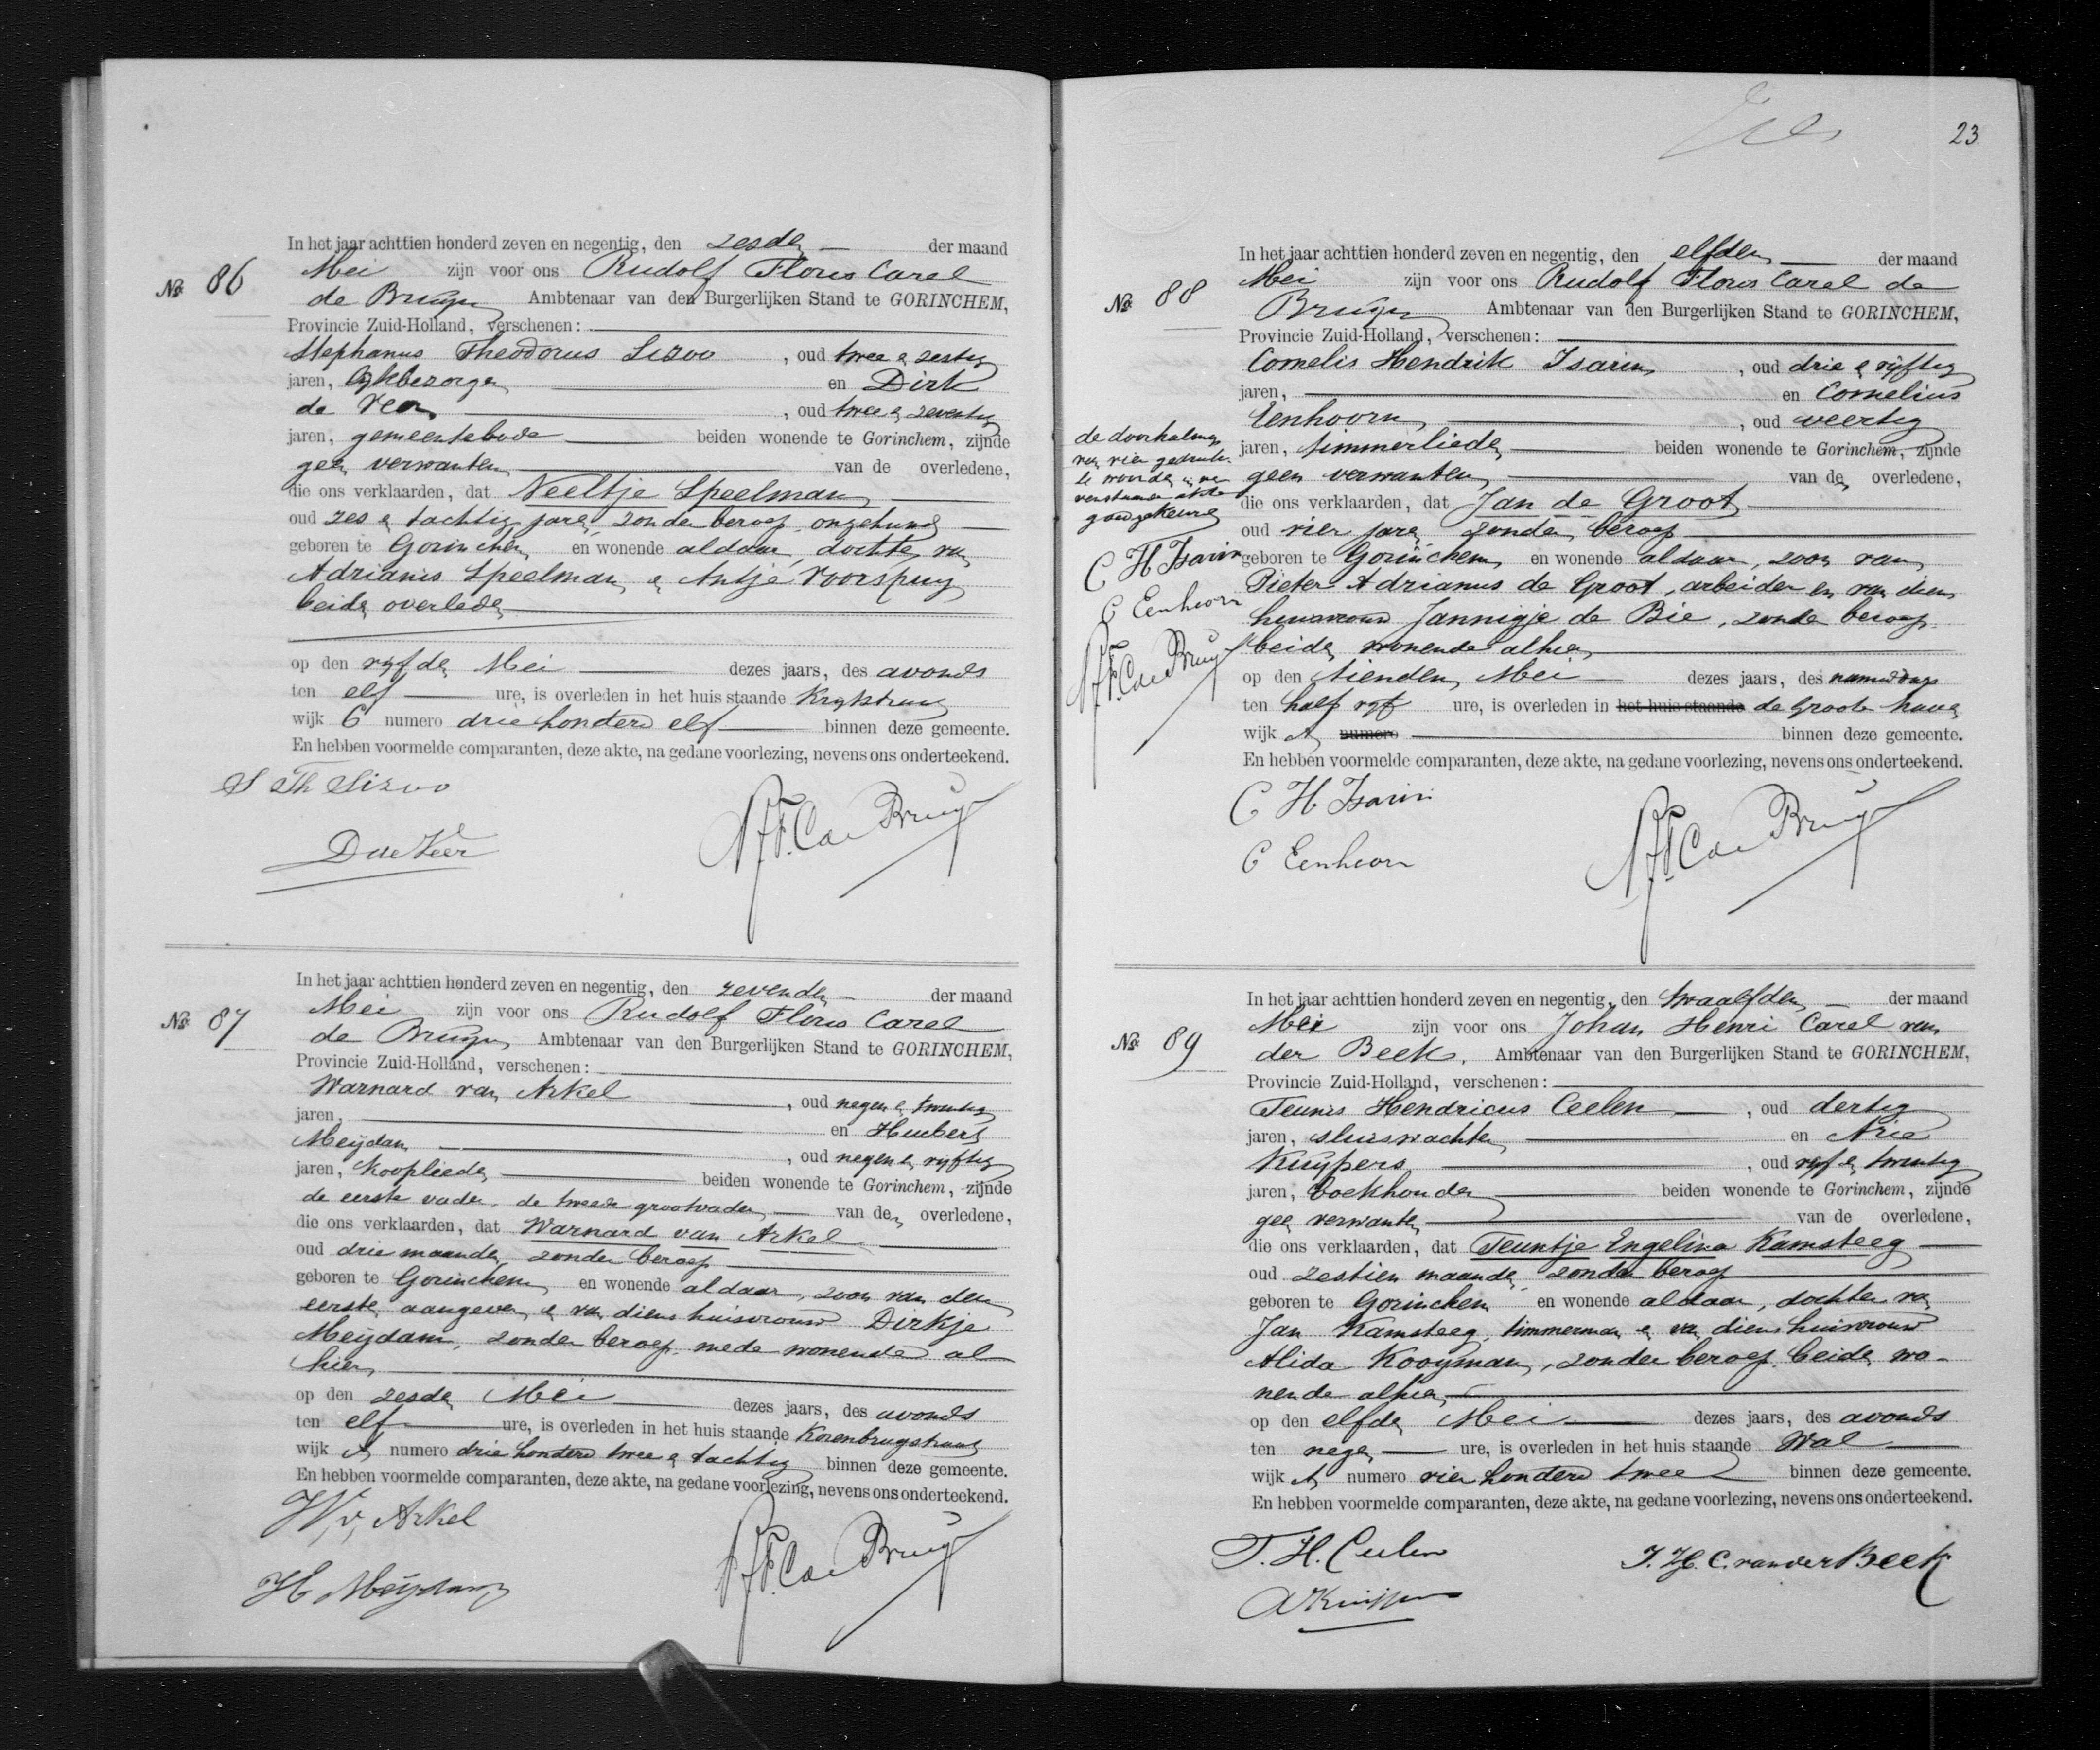 No. 86
In het jaar achttien honderd zeven en negentig, den zesden der maand
Mei zijn voor ons Rudolf Floris Carel
de Bruyn Ambtenaar van den Burgerlijken Stand te GORINCHEM,
Provincie Zuid-Holland, verschenen:
Stephanus Theodorus Sizoo, oud twee en zestig
jaren, lijkbezorger en Dirk
de Veer, oud twee en zeventig
jaren, gemeentebode beiden wonende te Gorinchem, zijnde
geen verwanten van de overledene,
die ons verklaarden, dat Neeltje Speelman
oud zes en tachtig jaren, zonder beroep, ongehuwd
geboren te Gorinchem en wonende aldaar, dochter van
Adrianus Speelman en Antje Voorspuy
beiden overleden
op den vijfden Mei dezes jaars, des avonds
ten elf ure, is overleden in het huis staande Krijtstraat
wijk C numero drie honderd elf binnen deze gemeente.
En hebben voormelde comparanten, deze akte, na gedane voorlezing, nevens ons onderteekend.
S Th Sizoo
D de Veer
R.F.C. de Bruyn
No. 87
In het jaar achttien honderd zeven en negentig, den zevenden der maand
Mei zijn voor ons Rudolf Floris Carel
de Bruyn Ambtenaar van den Burgerlijken Stand te GORINCHEM,
Provincie Zuid-Holland, verschenen:
Warnard van Arkel, oud negen en twintig
jaren, en Huibert
Meijdam, oud negen en vijftig
jaren, kooplieden beiden wonende te Gorinchem, zijnde
de eerste vader, de tweede grootvader van den overledene,
die ons verklaarden, dat Warnard van Arkel
oud drie maanden, zonder beroep
geboren te Gorinchem en wonende aldaar, zoon van den
eersten aangever en van diens huisvrouw Dirkje
Meijdam, zonder beroep, mede wonende al
hier
op den zesden Mei dezes jaars, des avonds
ten elf ure, is overleden in het huis staande Korenbrugstraat
wijk A numero drie honderd twee en tachtig binnen deze gemeente.
En hebben voormelde comparanten, deze akte, na gedane voorlezing, nevens ons onderteekend.
W. v. Arkel
H Meijdam
R.F.C. de Bruyn
23
No. 88
In het jaar achttien honderd zeven en negentig, den elfden der maand
Mei zijn voor ons Rudolf Floris Carel de
Bruyn Ambtenaar van den Burgerlijken Stand te GORINCHEM,
Provincie Zuid-Holland, verschenen:
Cornelis Hendrik Isarin, oud drie en vijftig
jaren, en Cornelius
Eenhoorn, oud veertig
jaren, timmerlieden beiden wonende te Gorinchem, zijnde
geen verwanten van den overledene,
die ons verklaarden, dat Jan de Groot
oud vier jaren, zonder beroep
geboren te Gorinchem en wonende aldaar, zoon van
Pieter Adrianus de Groot, arbeider en van diens
huisvrouw Jannigje de Bie, zonder beroep
beiden wonende alhier
op den tienden Mei dezes jaars, des namiddags
ten half vijf ure, is overleden in het huis staande de Groote haven
wijk A numero binnen deze gemeente.
En hebben voormelde comparanten, deze akte, na gedane voorlezing, nevens ons onderteekend.
C H Isarin
C Eenhoorn
R.F.C. de Bruyn
de doorhaling
van vier gedrukte
woorden
goedgekeurd
C H Isarin
C Eenhoorn
R.F.C. de Bruyn
No. 89
In het jaar achttien honderd zeven en negentig, den twaalfden der maand
Mei zijn voor ons Johan Henri Carel van
der Beek, Ambtenaar van den Burgerlijken Stand te GORINCHEM,
Provincie Zuid-Holland, verschenen:
Teunis Hendricus Ceelen, oud dertig
jaren, sluiswachter en Arie
Kuijpers, oud vijf en twintig
jaren, boekhouder beiden wonende te Gorinchem, zijnde
geen verwanten van de overledene,
die ons verklaarden, dat Teuntje Engelina Kamsteeg
oud zestien maanden, zonder beroep
geboren te Gorinchem en wonende aldaar, dochter van
Jan Kamsteeg, timmerman en van diens huisvrouw
Alida Kooyman, zonder beroep, beiden wo-
nende alhier
op den elfden Mei dezes jaars, des avonds
ten negen ure, is overleden in het huis staande Wal
wijk A numero vier honderd twee binnen deze gemeente.
En hebben voormelde comparanten, deze akte, na gedane voorlezing, nevens ons onderteekend.
T. H. Ceelen
A Kuijpers
J. H. C. van der Beek